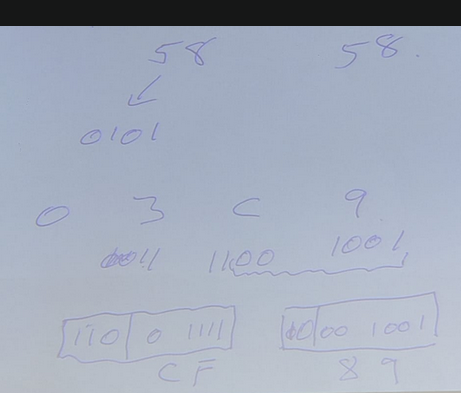 58 58.
0101
0 3 C 9
0011 1100 1001
110 0 1111 10 00 1001
CF 89